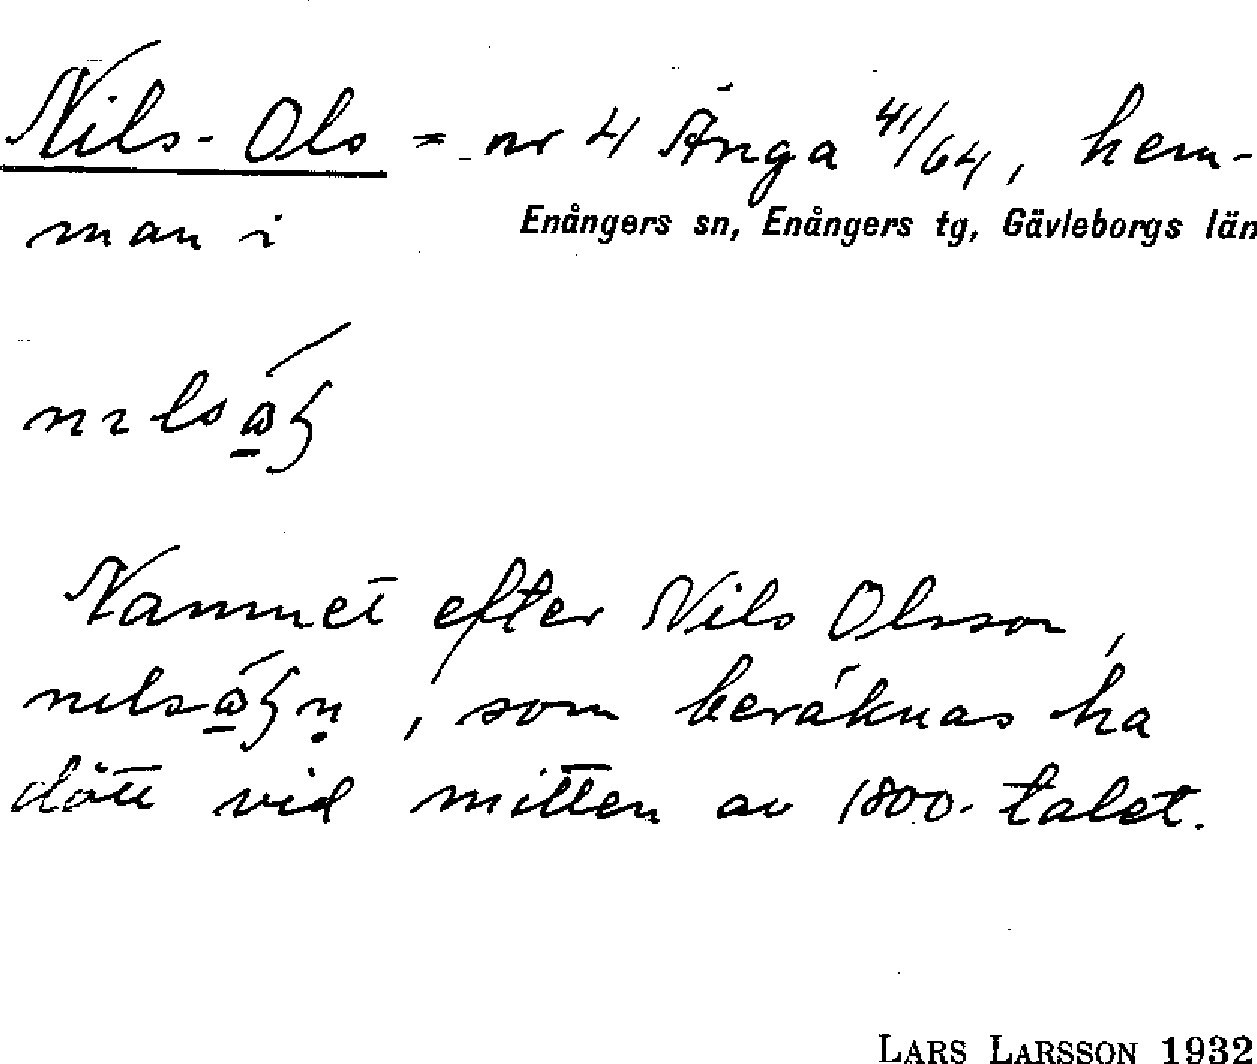 Nils-Ols = nr 4 Änga 41/64, hem-
man i Enångers sn, Enångers tg, Gävleborgs län
Namnet efter Nils Olsson,
, som beräknas ha
dött vid mitten av 1800-talet.
LARS LARSSON 1932